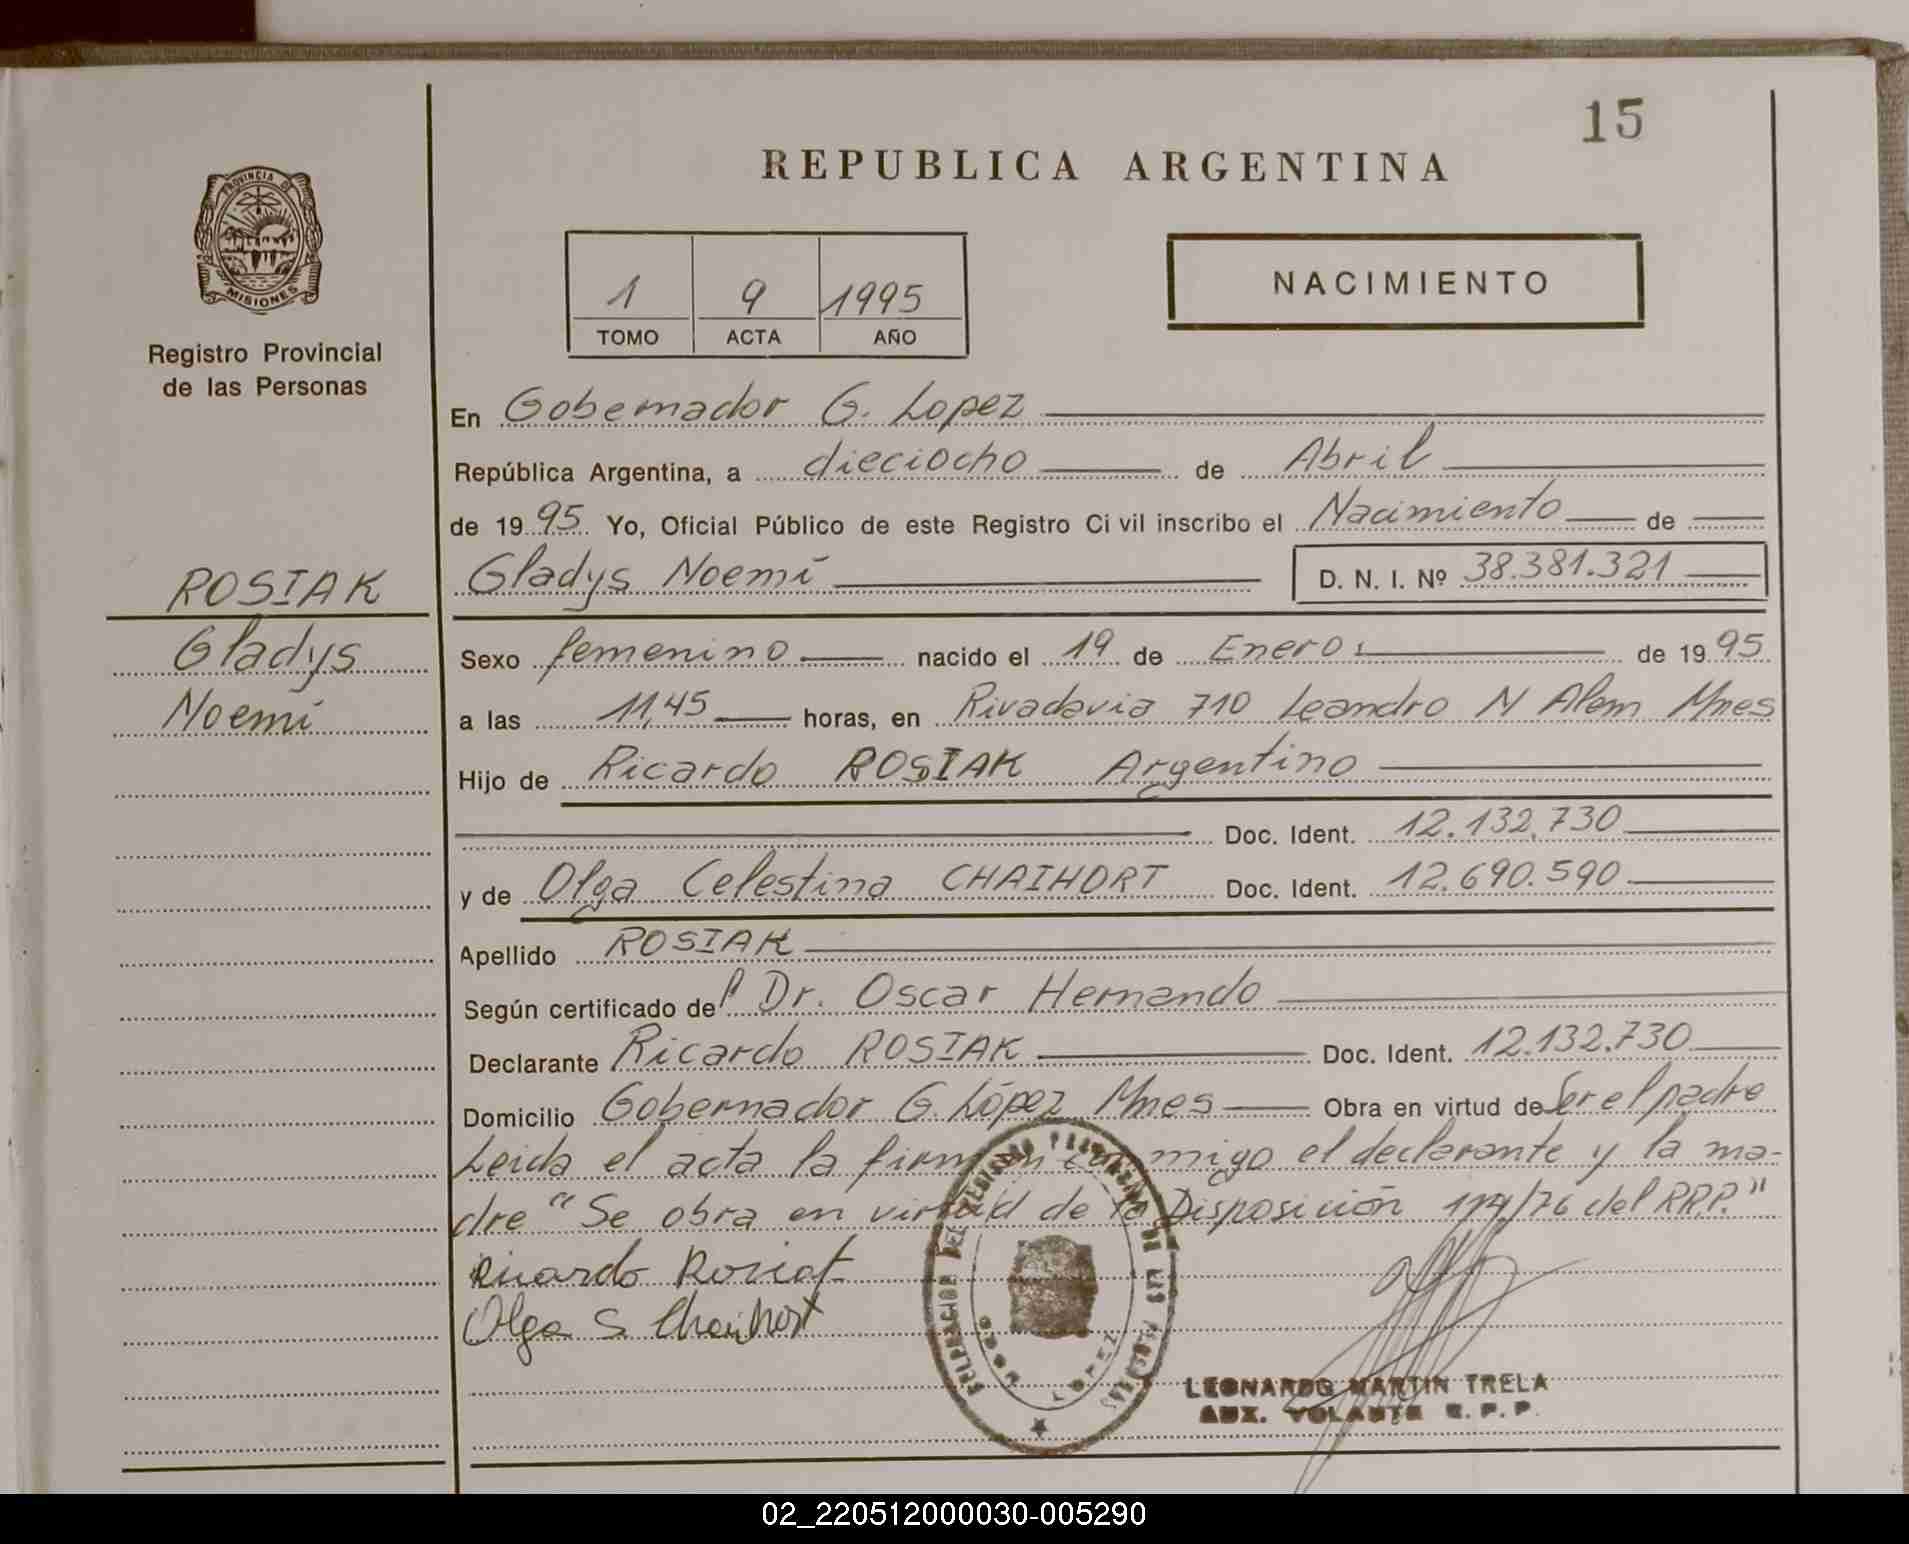 15
REPUBLICA ARGENTINA
PROVINCIA DE
MISIONES
Registro Provincial
de las Personas
1 9 1995
TOMO ACTA AÑO
NACIMIENTO
En Gobernador G. Lopez
República Argentina, a dieciocho de Abril
de 1995 Yo, Oficial Público de este Registro Ci vil inscribo el Nacimiento de
Gladys Noemí D. N. I. Nº 38.381.321
ROSIAK
Gladys
Noemí
Sexo femenino nacido el 19 de Enero de 1995
a las 11,45 horas, en Rivadavia 710 Leandro N Alem Mnes
Hijo de Ricardo ROSIAK Argentino
Doc. Ident. 12.132.730
y de Olga Celestina CHAIHORT Doc. Ident. 12.690.590
Apellido ROSIAK
Según certificado del Dr. Oscar Hernando
Declarante Ricardo ROSIAK Doc. Ident. 12.132.730
Domicilio Gobernador G. López Mnes Obra en virtud de Ser el padre
Leida el acta la firman conmigo el declarante y la ma-
dre "Se obra en virtud de la Disposición 114/76 del R.R.P."
Ricardo Rosiak
Olga S Chaihort
LEONARDO MARTIN TRELA
AUX. VOLANTE R.P.P.
02_220512000030-005290